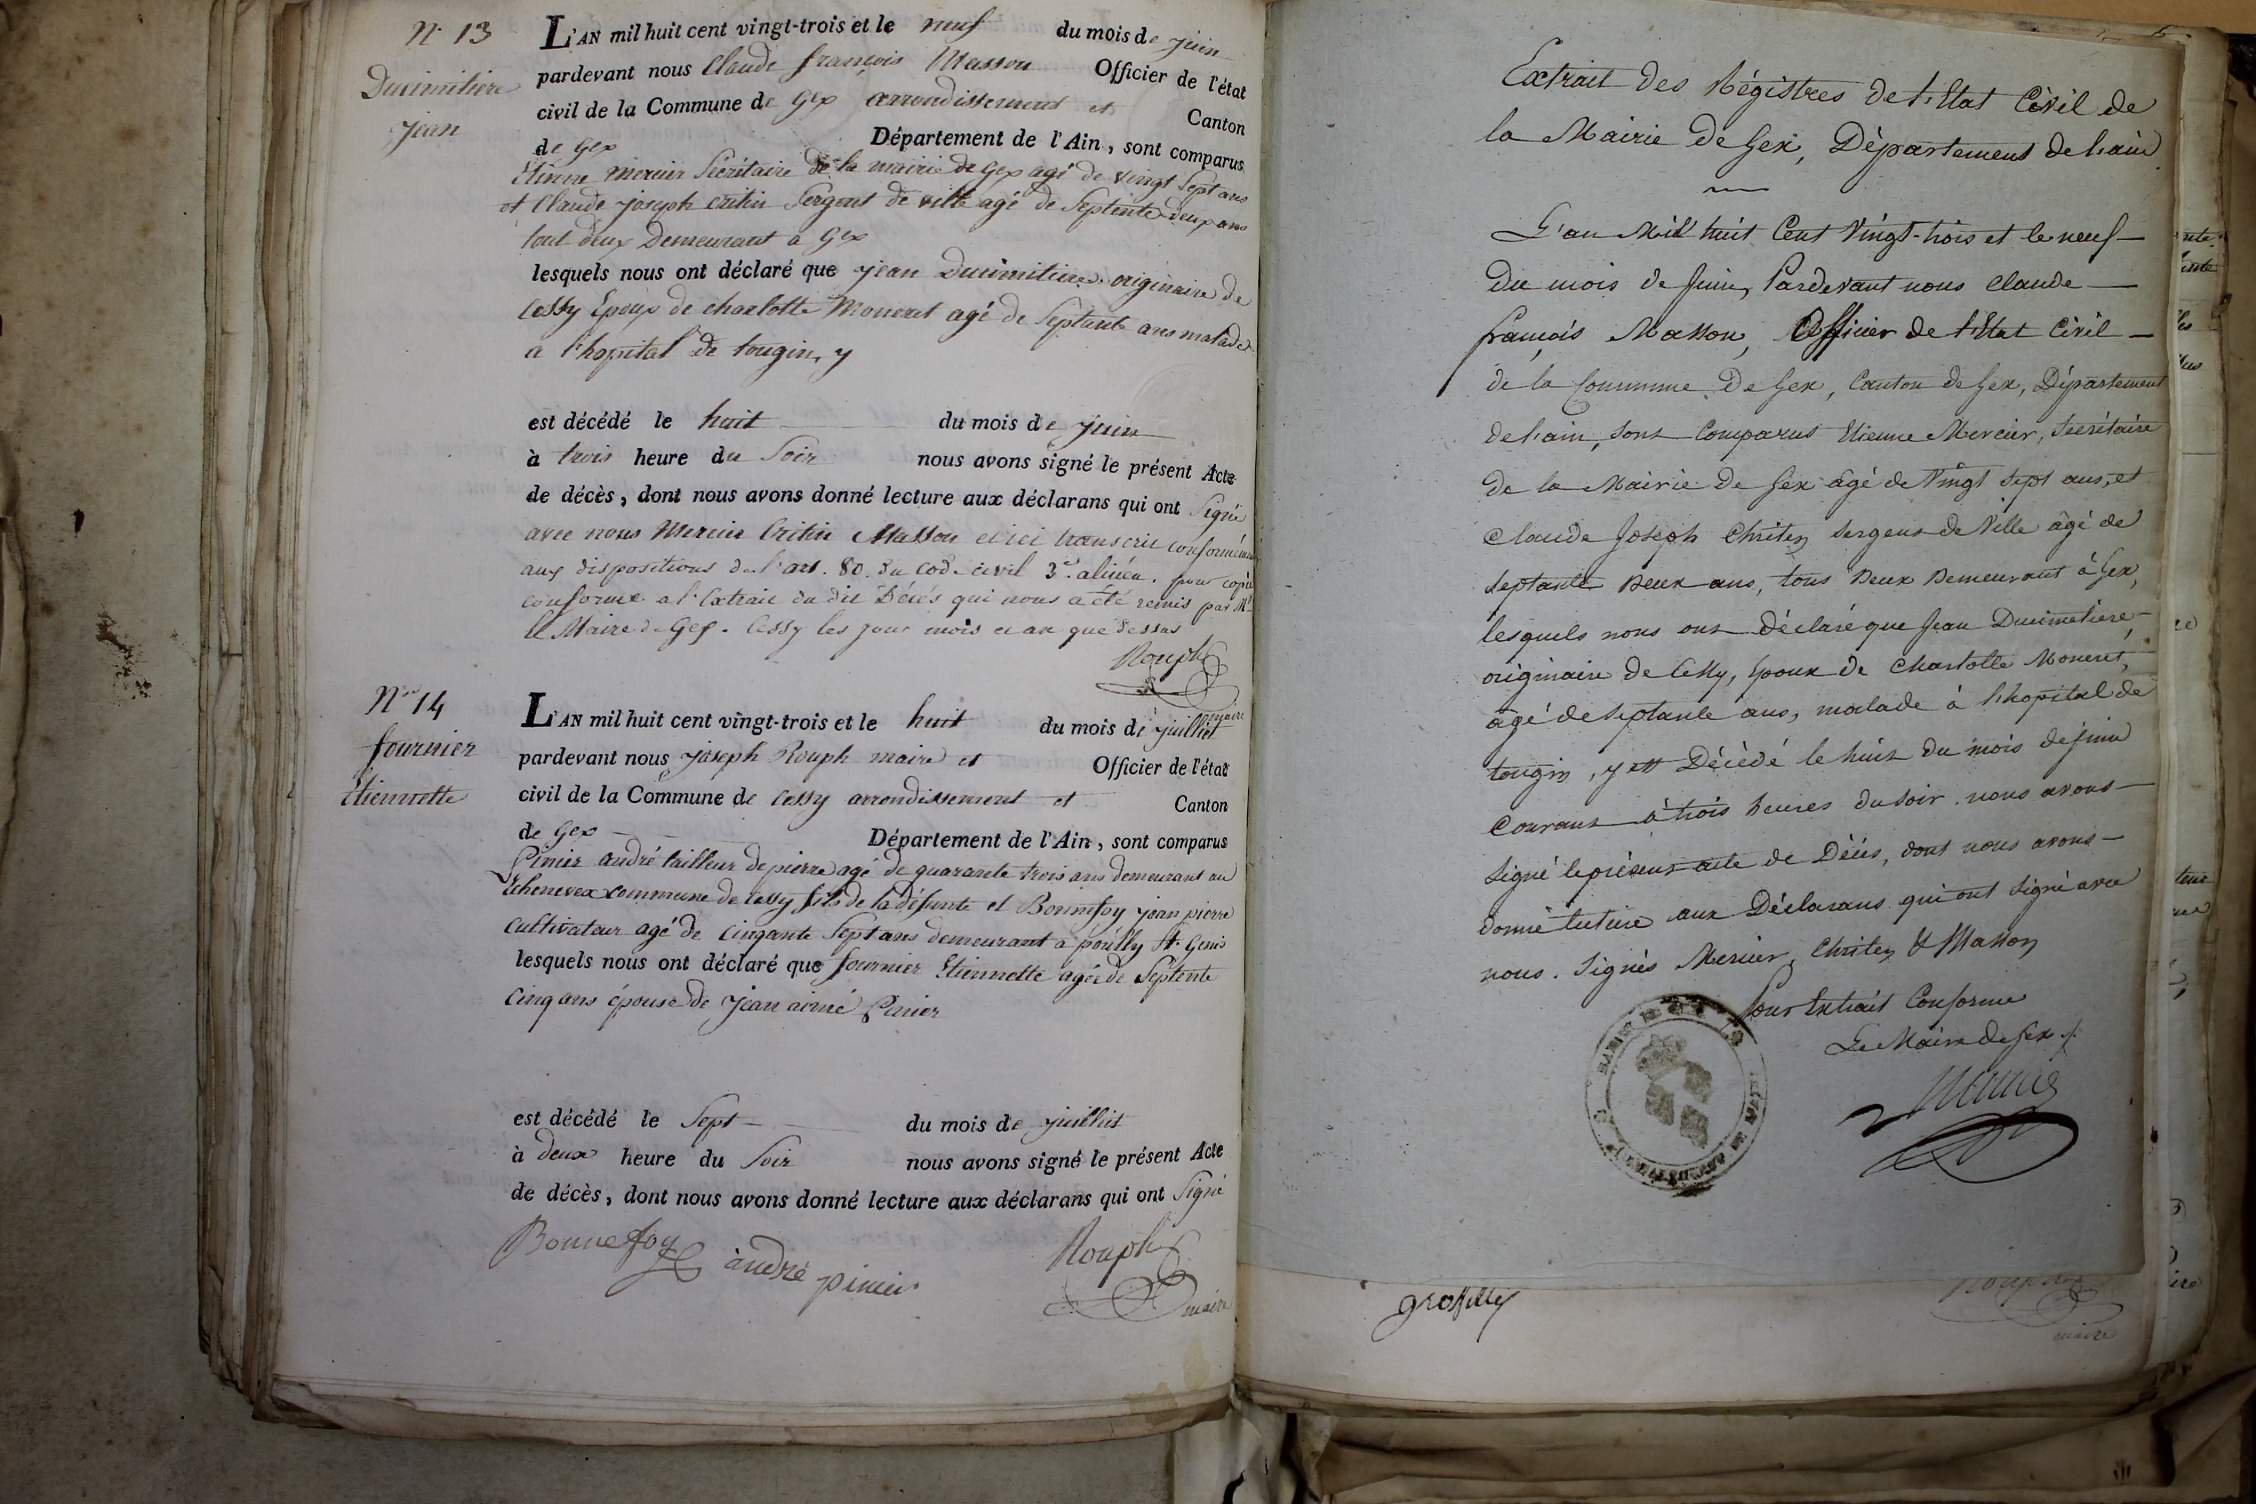 N.° 13
Ducimitiere
jean
L'AN mil huit cent vingt-trois et le neuf du mois de juin
pardevant nous Claude françois Masson Officier de l'état
civil de la Commune de Gex arrondissement et Canton
de Gex Département de l'Ain, sont comparus
Etienne mercier Sécrétaire de la mairie de Gex agé de vingt Sept ans
et Claude joseph critin Sergent de ville agé de Septente deux ans
tout deux Demeurant a Gex
lesquels nous ont déclaré que jean Ducimitiere originaire de
Cessy Epoux de charlotte Moneret agé de Septante ans malade
a l'hopital de tougin, y
est décédé le huit du mois de juin
à trois heure du Soir nous avons signé le présent Acte
de décès, dont nous avons donné lecture aux déclarans qui ont Signé
avec nous Mercier Critin Masson et ici transcrit conformément
aux dispositions de l'art. 80 du code civil 3e. alinéa. pour copie
conforme a l'Extrait du dit Décés qui nous a été remis par Mr.
le Maire de Gex. Cessy les jour mois et an que dessus
Rouph
maire
N.° 14
fournier
Etiennette
L'AN mil huit cent vingt-trois et le huit du mois de juillet
pardevant nous joseph Rouph maire et Officier de l'état
civil de la Commune de Cessy arrondissement et Canton
de Gex Département de l'Ain, sont comparus
Pinier andré tailleur de pierre agé de quarante trois ans demeurant au
Echenevex commune de Cessy fils de la défunte et Bonnefoy jean pierre
Cultivateur agé de Cinqante Sept ans demeurant a pouilly St. Genis
lesquels nous ont déclaré que fournier Etiennette agée de Septente
Cinq ans épouse de jean aimé Pinier
est décédé le Sept du mois de juillet
à deux heure du Soir nous avons signé le présent Acte
de décès, dont nous avons donné lecture aux déclarans qui ont Signé
Bonnefoy andré pinier Rouph
maire
Extrait des Régistres de l'Etat Civil de
la Mairie de Gex, Département de l'ain
L'an Mil huit Cent Vingt-trois et le neuf
Du mois de Juin, Pardevant nous Claude
françois Masson, Officier de l'Etat Civil
de la Commune de Gex, Canton de Gex, Département
de l'ain, sont Comparus Etienne Mercier, Secrétaire
de la Mairie de Gex âgé de Vingt sept ans, et
Claude Joseph Chriten sergent de Ville âgé de
septante Deux ans, tous Deux Demeurant à Gex,
lesquels nous ont déclaré que Jean Ducimetière
originaire de Cessy, Epoux de Charlotte Moneret,
âgé de septante ans, malade à l'hopital de
tougin, y est Décèdé le huit Du mois de Juin
Courant à trois heures du soir. nous avons
Signé le présent acte de Décès, dont nous avons
donné lecture aux Déclarans qui ont Signé avec
nous. Signés Mercier, Chriten & Masson
Pour Extrait Conforme
Le Maire de Gex
MAIRIE DE GEX
grossilly
Rouph
maire